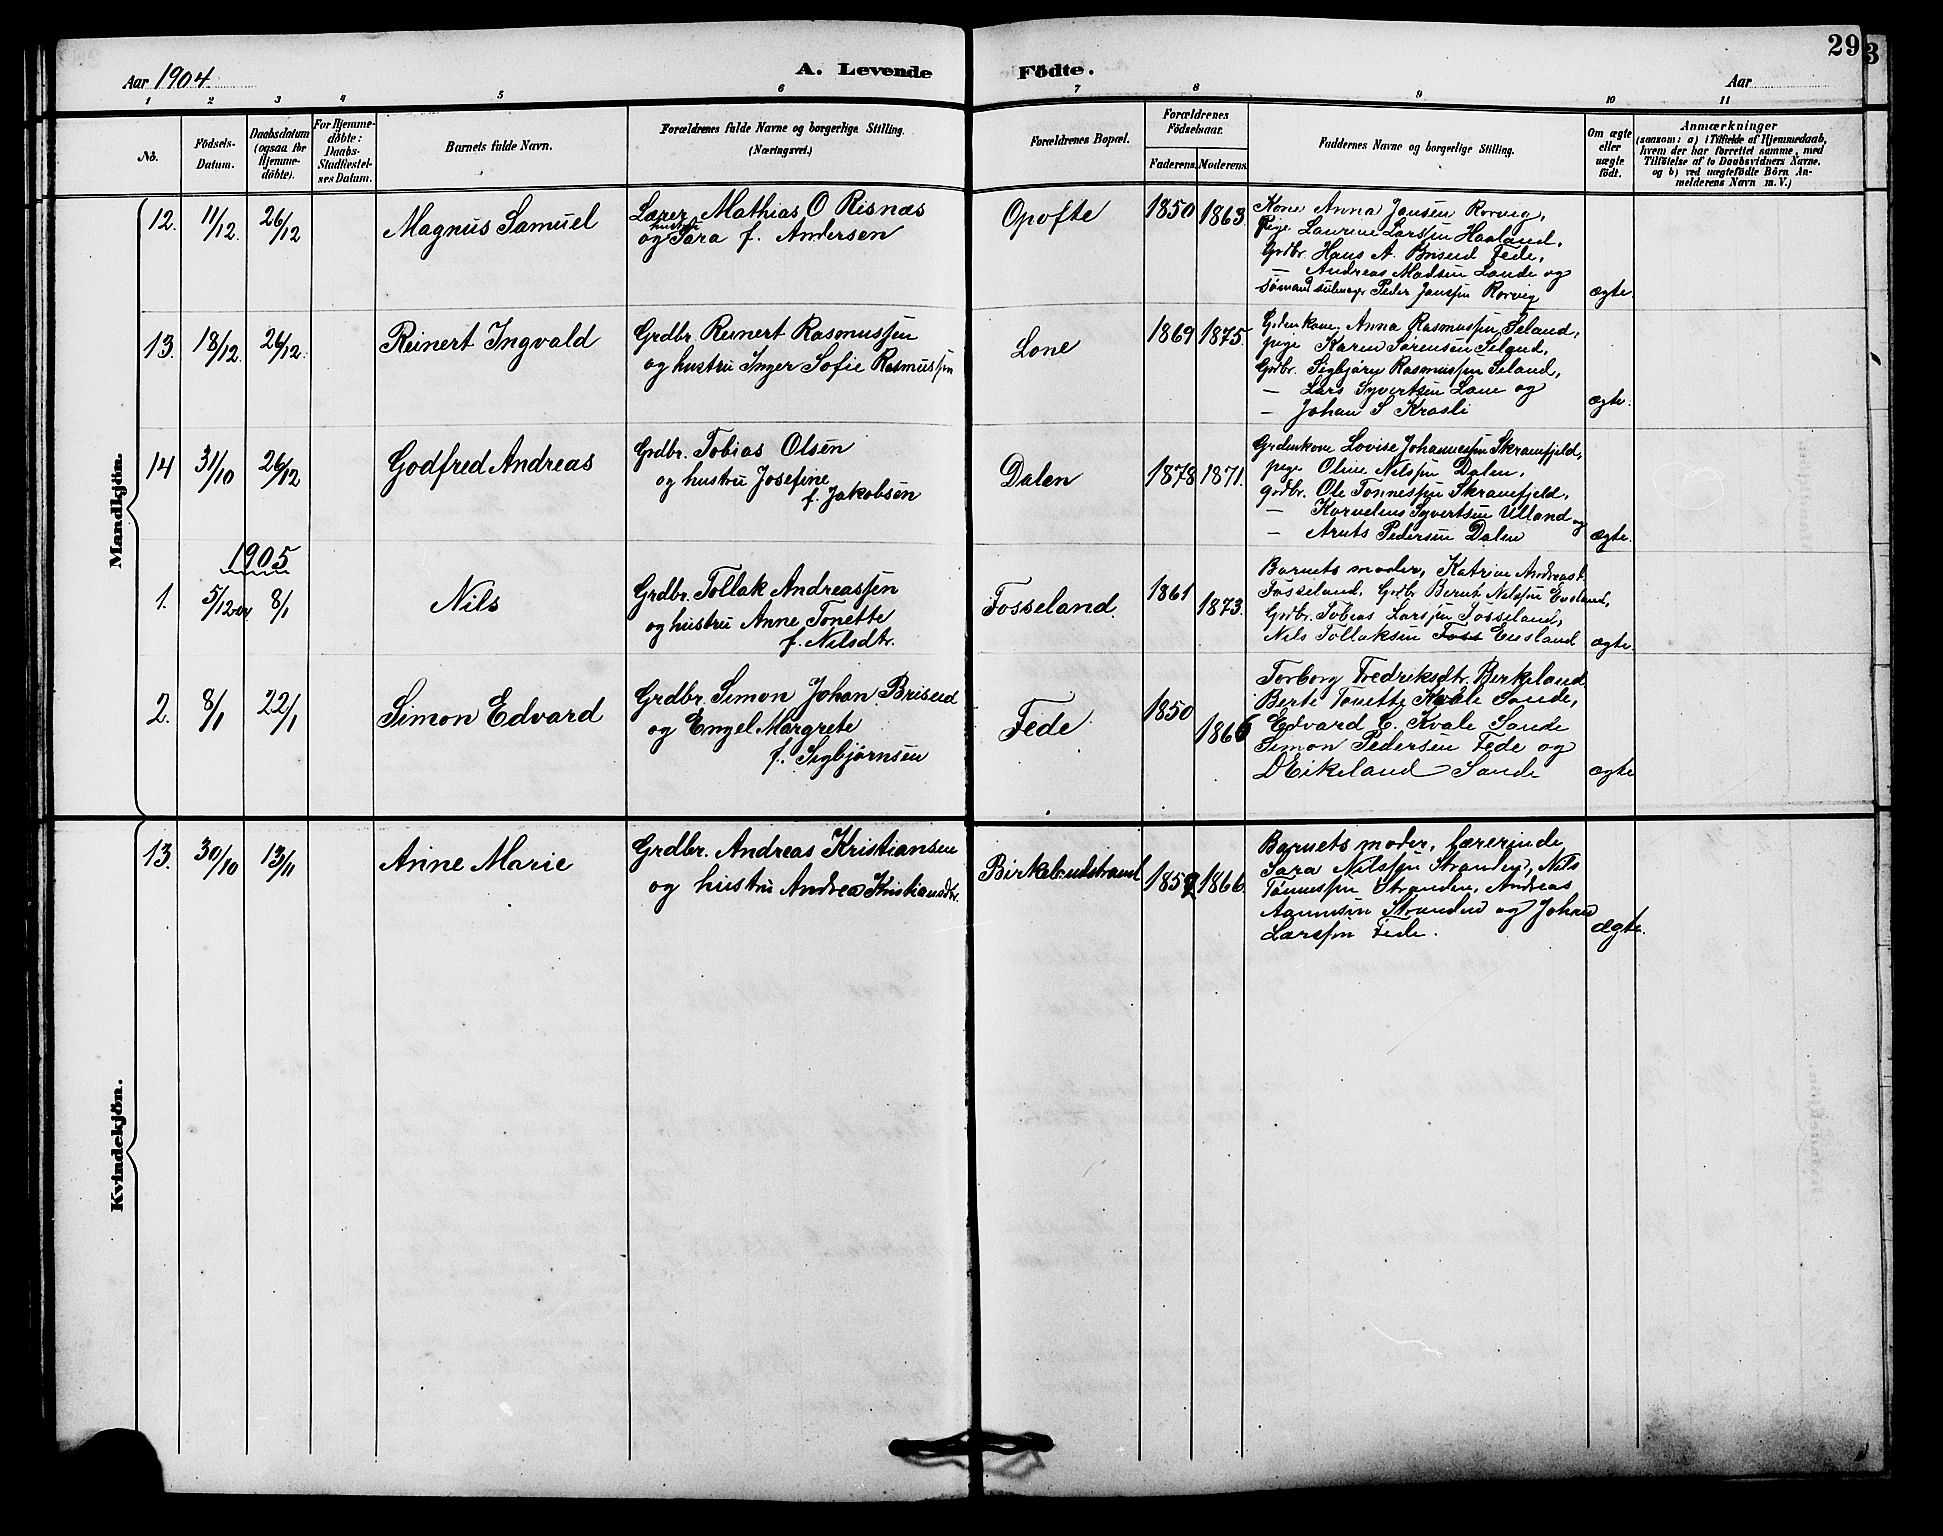 Aar 1904.
A. Levende Födte.
29
3
Aar
1 2 3 4 5 6 7 8 9 10 11
No.
Födsels-
Datum.
Daabsdatum
(ogsaa for
Hjemme-
döbte).
For Hjemme-
döbte:
Daabs-
Stadfæstel-
ses Datum.
Barnets fulde Navn.
Forældrenes fulde Navne og borgerlige Stilling.
(Næringsvei.)
Forældrenes Bopæl.
Forældrenes
Födselsaar.
Faderens. Moderens.
Faddernes Navne og borgerlige Stilling.
Om ægte
eller
uægte
födt.
Anmærkninger
(saasom: a) i Tilfælde af Hjemmedaab,
hvem der har forrettet samme, med
Tilföielse af to Daabsvidners Navne.
og b) ved uægtefödte Börn An-
melderens Navn m. V.)
Mandkjön.
12. 11/12. 26/12
Magnus Samuel
Lærer Mathias O Risnæs
hustru
og Sara f. Andersen
Opofte
1850 1863.
Kone Anna Jansen Rorvig,
Pige Laurine Larssen Haaland,
Grdbr. Hans A. Briseid Fede,
— Andreas Madsen Lande og
Sømand Peder Janssen Rorvig
ægte.
13. 18/12. 26/12.
Reinert Ingvald
Grdbr. Reinert Rasmussen
og hustru Inger Sofie Rasmussen
Lone
1869 1875.
Anna Rasmussen Seland,
pige Karen Sørensen Seland,
Grdbr. Sigbjørn Rasmussen Seland,
— Lars Syvertsen Lone og
— Johan S Krosli
ægte.
14 31/10 26/12
Godfred Andreas
Grdbr. Tobias Olsen
og hustru Josefine
f. Jakobsen
Dalen
1878 1871.
Grdmkone Lovise Johannessen Skranefjeld,
pige Oline Nilssen Dalen,
grdbr. Ole Tønnessen Skranefjeld,
— Kornelius Syvertsen Ulland og
— Arnts Pedersen Dalen
ægte.
1905
1. 5/12 04 8/1
Nils
Grdbr. Tollak Andreassen
og hustru Anne Tonette
f. Nilsdtr.
Fosseland.
1861 1873.
Barnets moder, Katrine Andreasd.
Fosseland, Grdbr Bernt Nilssen Eusland,
Grdbr. Tobias Larssen Fosseland,
Nils Tollaksen Foss Eusland
ægte.
2. 8/1 22/1
Simon Edvard
Grdbr. Simon Johan Briseid
og Engel Margrete
f. Sigbjørnsen
Fede
1850 1866
Torborg Fredriksdtr. Birkeland.
Berte Tonette Kvåle Sande,
Edvard C. Kvale Sande
Simon Pedersen Fede og
D Eikeland Sande
ægte
Kvindekjön.
13. 30/10 13/11
Anne Marie
Grdbr. Andreas Kristiansen
og hustru Andrea Kristiansdtr.
Birkelandstrand
1852 1866
Barnets moder, lærerinde
Sara Nilssen Stranden, Nils
Tønnessen Stranden, Andreas
Aanensen Stranden og Johan
Larssen Fede.
ægte.